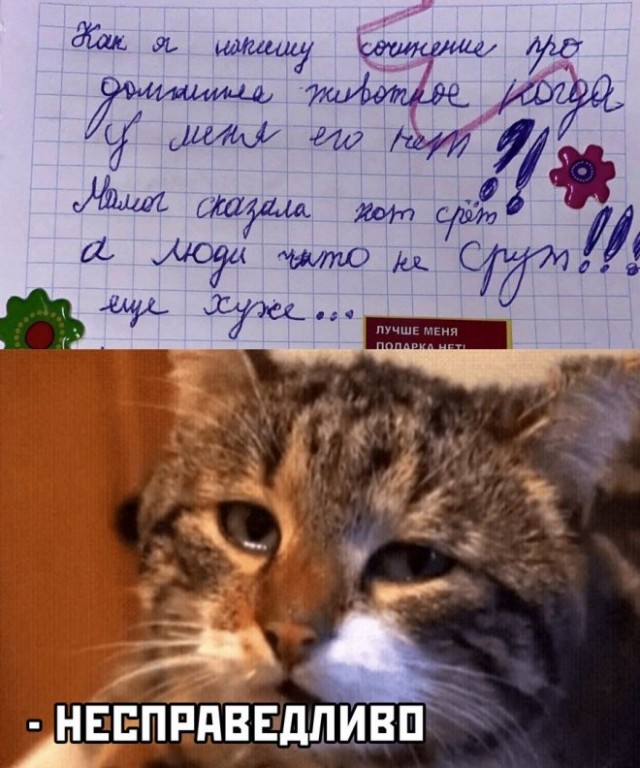 Как я напишу сочинение про
домашнеа животное когда
у меня его нет?!
Мамаг сказала кот срёт
а люди чито не Срут!!!
еще хуже...
ЛУЧШЕ МЕНЯ
ПОДАРКА НЕТ!
- НЕСПРАВЕДЛИВО